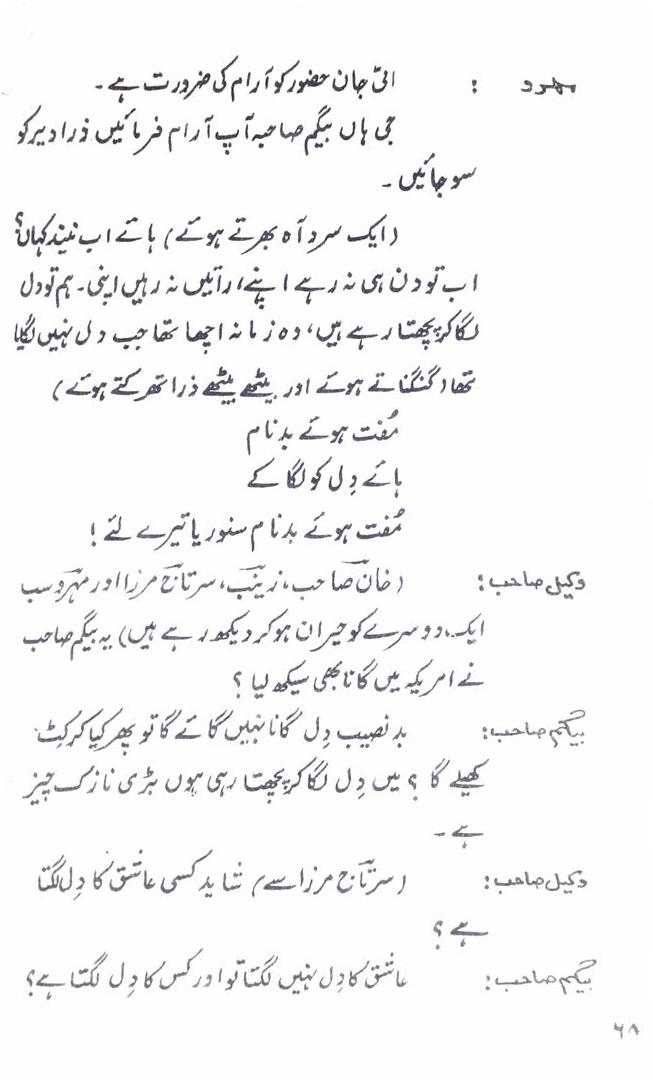 مہرو : امّی جان حضور کو آرام کی ضرورت ہے۔
جی ہاں بیگم صاحبہ آپ آرام فرمائیں ذرا دیر کو
سو جائیں۔
(ایک سرد آہ بھرتے ہوئے) ہائے اب نیند کہاں؟
اب تو دن ہی نہ رہے اپنے، راتیں نہ رہیں اپنی۔ ہم تو دل
لگا کر پچھتا رہے ہیں، وہ زمانہ اچھا تھا جب دل نہیں لگایا
تھا (گنگناتے ہوئے اور بیٹھے بیٹھے ذرا تھرکتے ہوئے)
مُفت ہوئے بدنام
ہائے دِل کو لگا کے
مُفت ہوئے بدنام سنوریا تیرے لئے!
وکیل صاحب: (خان صاحب، زینب، سرتاج مرزا اور مہرو سب
ایک دوسرے کو حیران ہو کر دیکھ رہے ہیں) یہ بیگم صاحب
نے امریکہ میں گانا بھی سیکھ لیا؟
بیگم صاحب: بدنصیب دِل گانا نہیں گائے گا تو پھر کیا کرکٹ
کھیلے گا؟ میں دِل لگا کر پچھتا رہی ہوں بڑی نازک چیز
ہے۔
وکیل صاحب: (سرتاج مرزا سے) شاید کسی عاشق کا دِل لگتا
ہے؟
بیگم صاحب: عاشق کا دِل نہیں لگتا تو اور کس کا دِل لگتا ہے؟
۶۸